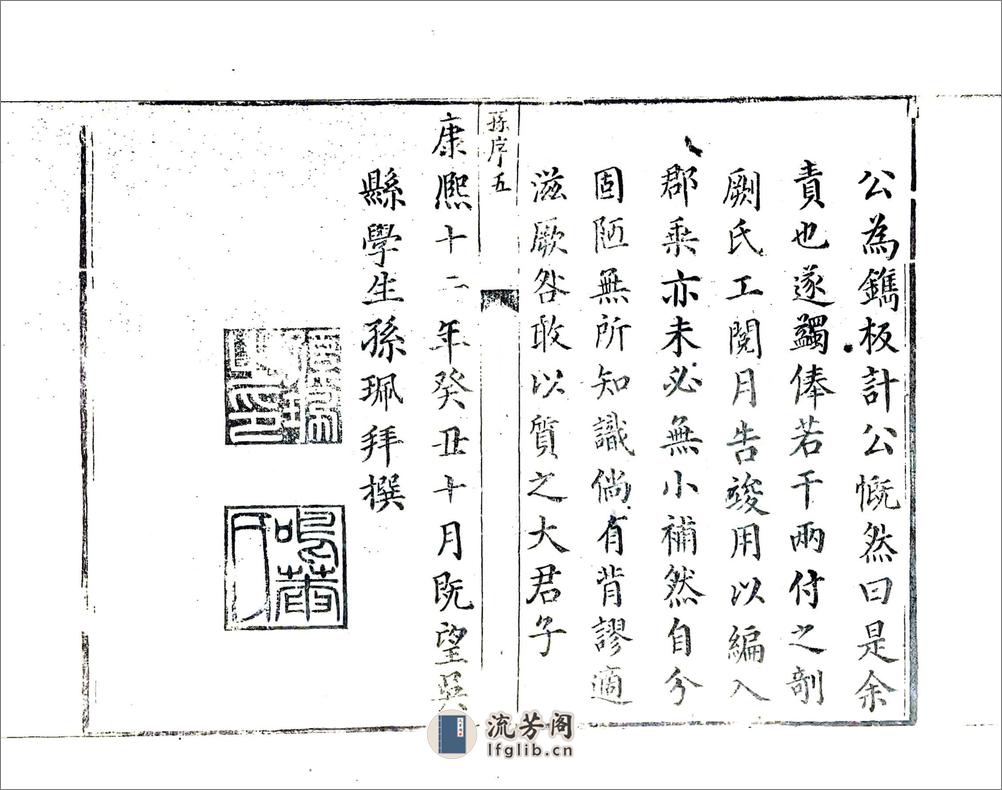 公為鐫板計公慨然曰是余
責也遂蠲俸若干兩付之剖
劂氏工閱月告竣用以編入
郡乘亦未必無小補然自分
固陋無所知識倘有背謬適
滋厥咎敢以質之大君子
孫序五
康熙十二年癸丑十月既望吳
縣學生孫珮拜撰
流芳阁
lfglib.cn